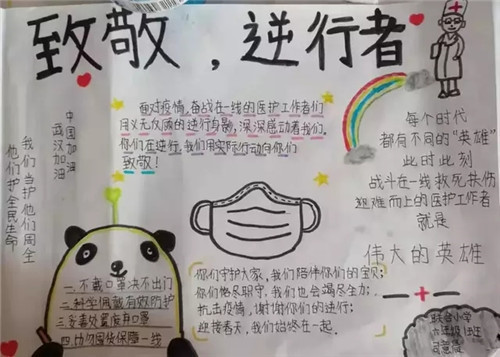 致敬，逆行者
中国加油
武汉加油
我们当护他们周全
他们护全民生命
面对疫情，奋战在一线的医护工作者们
用义无反顾的逆行身影，深深感动着我们。
你们在逆行，我们用实际行动向你们
致敬！
每个时代
都有不同的“英雄
此时此刻
战斗在一线救死扶伤
迎难而上的医护工作者
就是
伟大的英雄
一.不戴口罩决不出门
二.科学佩戴有效防护
三.妥善处置废弃口罩
四.
保障一线
你们守护大家，我们陪伴你们的宝贝；
你们恪尽职守，我们也会竭尽全力；
抗击疫情，谢谢你们的逆行；
迎接春天，我们始终在一起。
小学
六年级
班